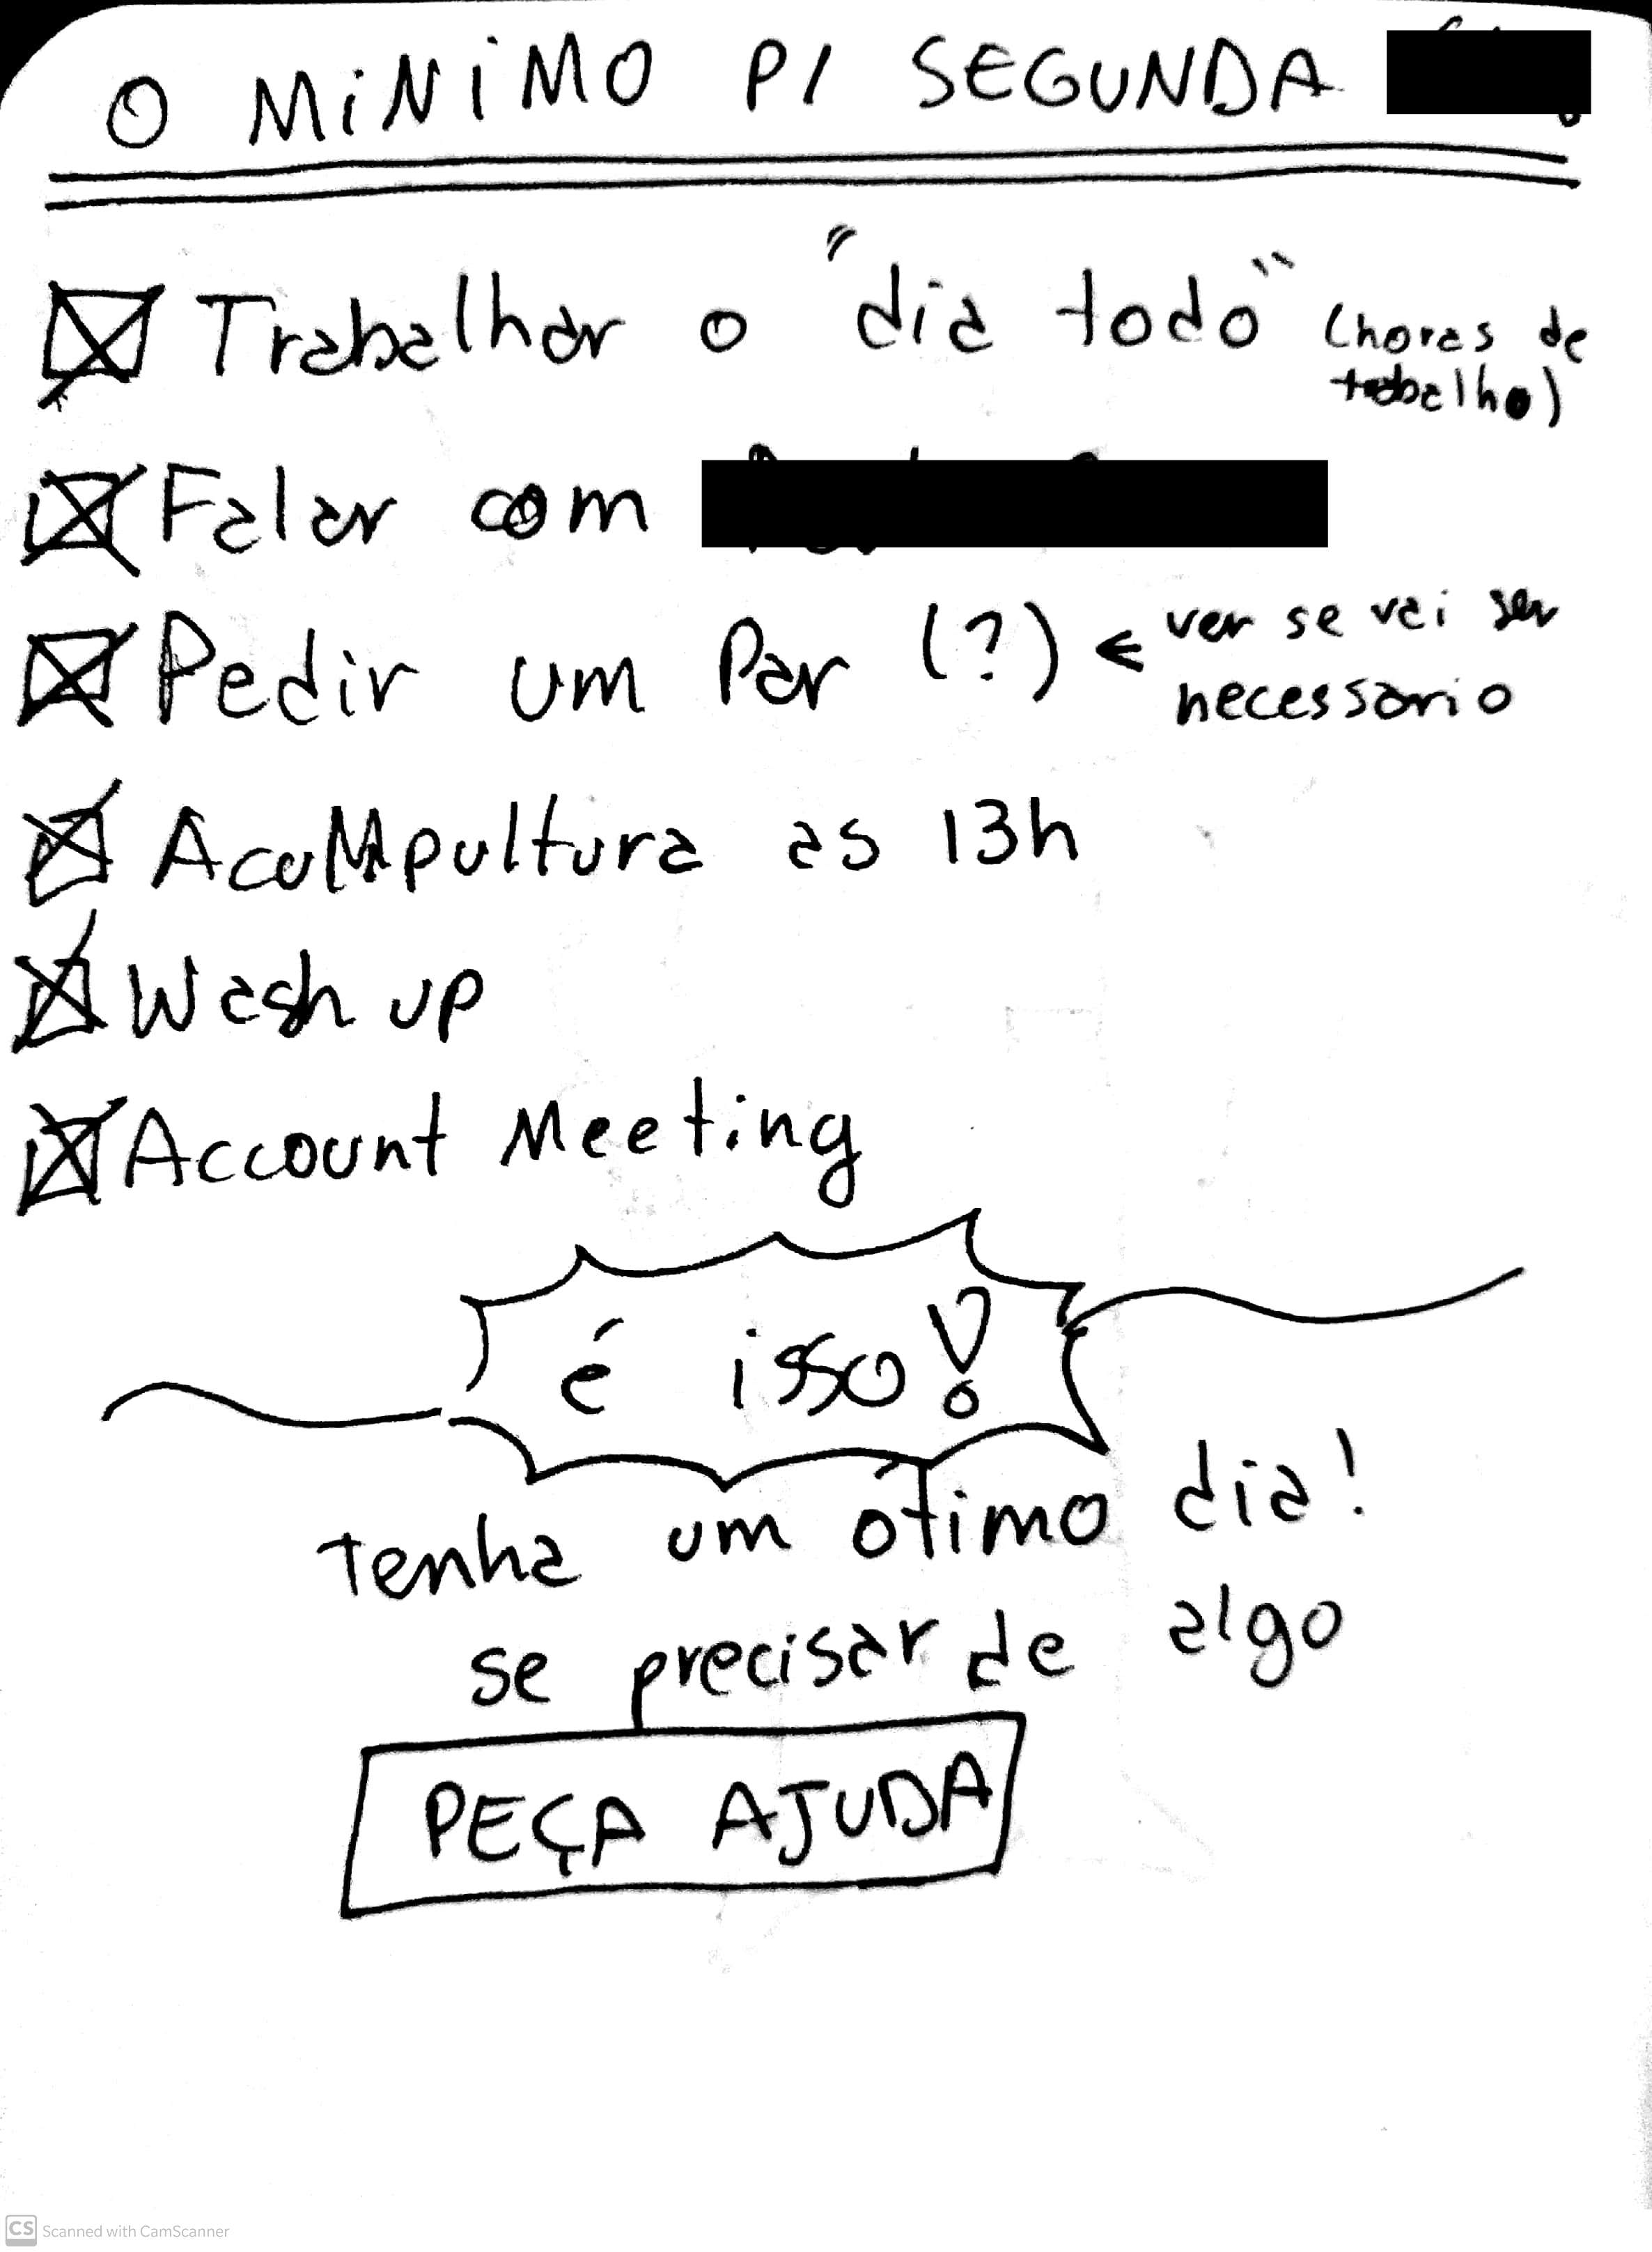 O MiNiMO P/ SEGUNDA
Trabalhar o "dia todo" (horas de
trabalho)
Falar com
Pedir um Par (?) ← ver se vai ser
necessario
AcuMpultura as 13h
Wash up
Account Meeting
é isso!
tenha um ótimo dia!
se precisar de algo
PEÇA AJUDA
CS Scanned with CamScanner